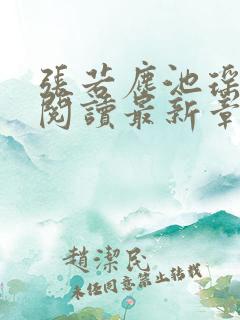 張若塵池瑤
閱讀最新章
趙潔民
未經同意禁止轉載